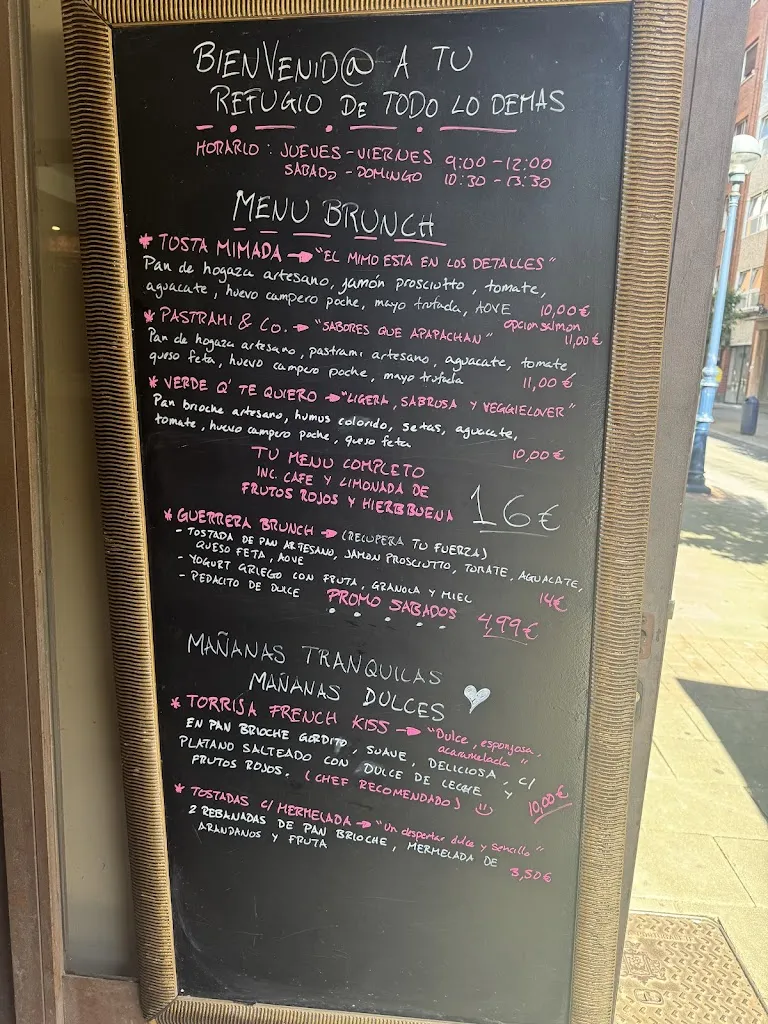 BIENVENID@ A TU
REFUGIO DE TODO LO DEMAS
HORARIO : JUEVES - VIERNES 9:00 - 12:00
SABADO - DOMINGO 10:30 - 13:30
MENU BRUNCH
* TOSTA MIMADA → "EL MIMO ESTA EN LOS DETALLES"
Pan de hogaza artesano, jamón prosciutto, tomate,
aguacate, huevo campero poche, mayo trufada, AOVE 10,00€
opcion salmon
* PASTRAMI & CO. → "SABORES QUE APAPACHAN" 11,00€
Pan de hogaza artesano, pastrami artesano, aguacate, tomate,
queso feta, huevo campero poche, mayo trufada 11,00€
* VERDE Q' TE QUIERO → "LIGERA, SABRUSA Y VEGGIELOVER"
Pan brioche artesano, humus colorido, setas, aguacate,
tomate, huevo campero poche, queso feta 10,00€
TU MENU COMPLETO
INC. CAFE Y LIMONADA DE
FRUTOS ROJOS Y HIERBBUENA 16€
* GUERRERA BRUNCH → (RECUPERA TU FUERZA)
- TOSTADA DE PAN ARTESANO, JAMON PROSCIUTTO, TOMATE, AGUACATE,
QUESO FETA, AOVE
- YOGURT GRIEGO CON FRUTA, GRANOLA Y MIEL 14€
- PEDACITO DE DULCE
PROMO SABADOS 4,99€
MAÑANAS TRANQUILAS
MAÑANAS DULCES
* TORRIJA FRENCH KISS → "Dulce, esponjosa,
acaramelada"
EN PAN BRIOCHE GORDITO, SUAVE, DELICIOSA, C/
PLATANO SALTEADO CON DULCE DE LECHE Y
FRUTOS ROJOS. (CHEF RECOMENDADO) 10,00€
* TOSTADAS C/ MERMELADA → "Un despertar dulce y sencillo"
2 REBANADAS DE PAN BRIOCHE, MERMELADA DE
ARANDANOS Y FRUTA 3,50€